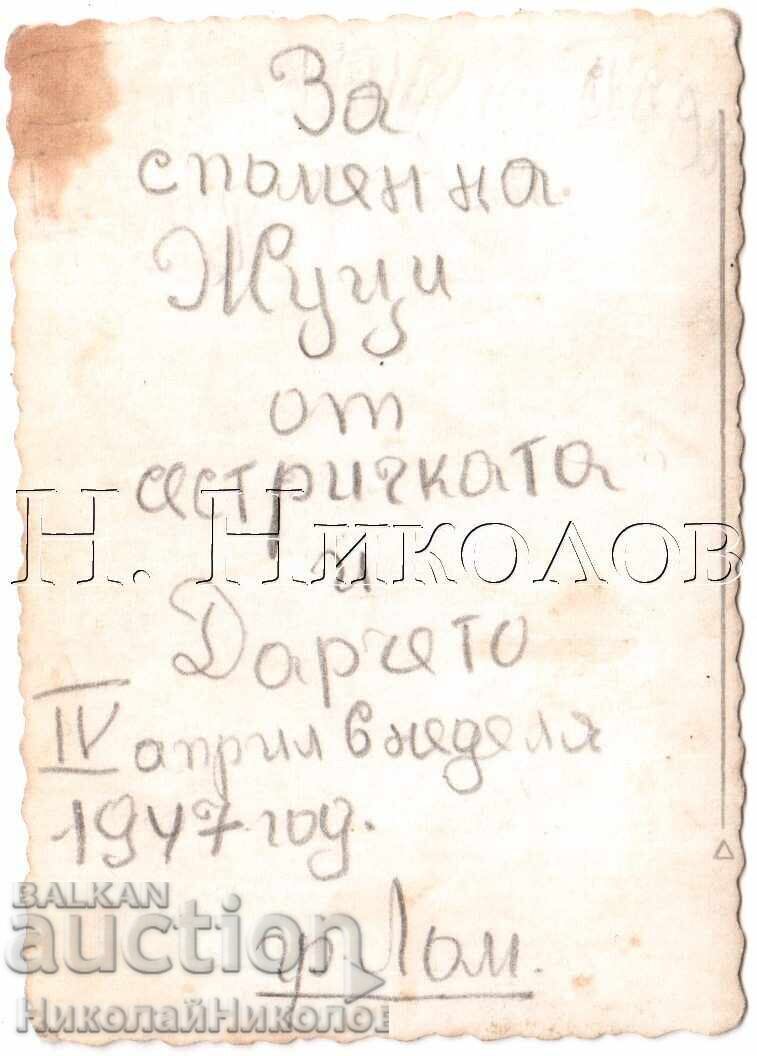 За
спомен на
Жуци
от
сестричката
Н. Николов
и
Дарчето
IV април в неделя
1947 год.
гр. Лом.
BALKAN
auction
НиколайНиколов